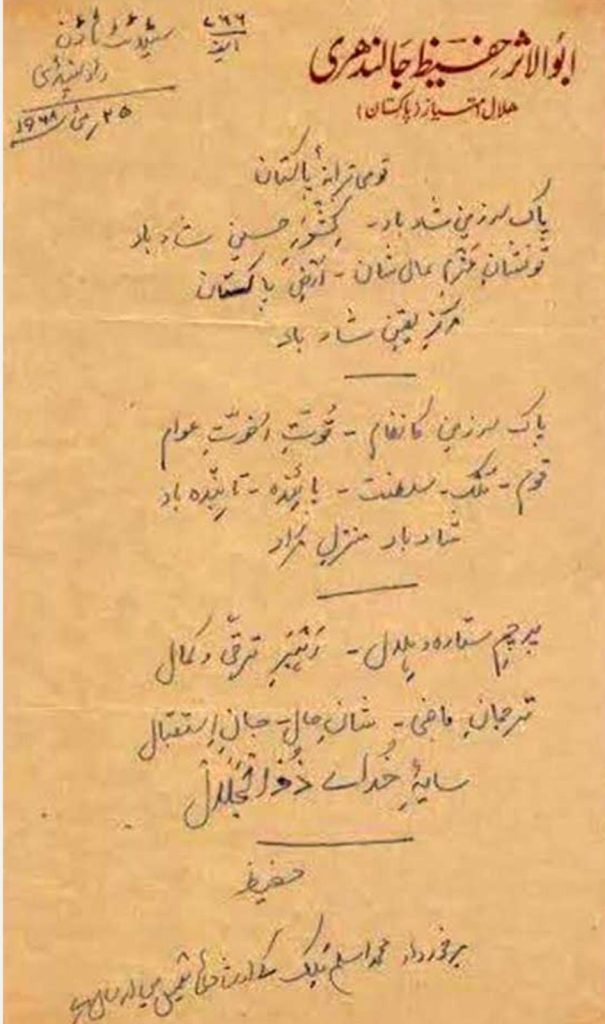 ابوالاثر حفیظ جالندھری
ھلال امتیاز (پاکستان)
۲۶۶
ایف
سٹیلائٹ ٹاؤن
راولپنڈی
۲۵ مئی ۱۹۶۸
قومی ترانۂ پاکستان
پاک سرزمین شاد باد - کِشْوَرِ حسین شاد باد
تو نشانِ عَزْمِ عالی شان - اَرْضِ پاکستان
مرکزِ یقین شاد باد
پاک سرزمین کا نظام - قُوّتِ اُخوّتِ عوام
قوم - مُلک - سلطنت - پائِنْدہ - تابِنْدہ باد
شاد باد منزلِ مُراد
پرچمِ ستارہ و ہِلال - رَہْبَرِ ترقّی و کمال
ترجمانِ ماضی - شانِ حال - جانِ اِستقبال
سایۂِ خُدائے ذُوالْجَلال
حفیظ
برخوردار محمد اسلم ملک کے